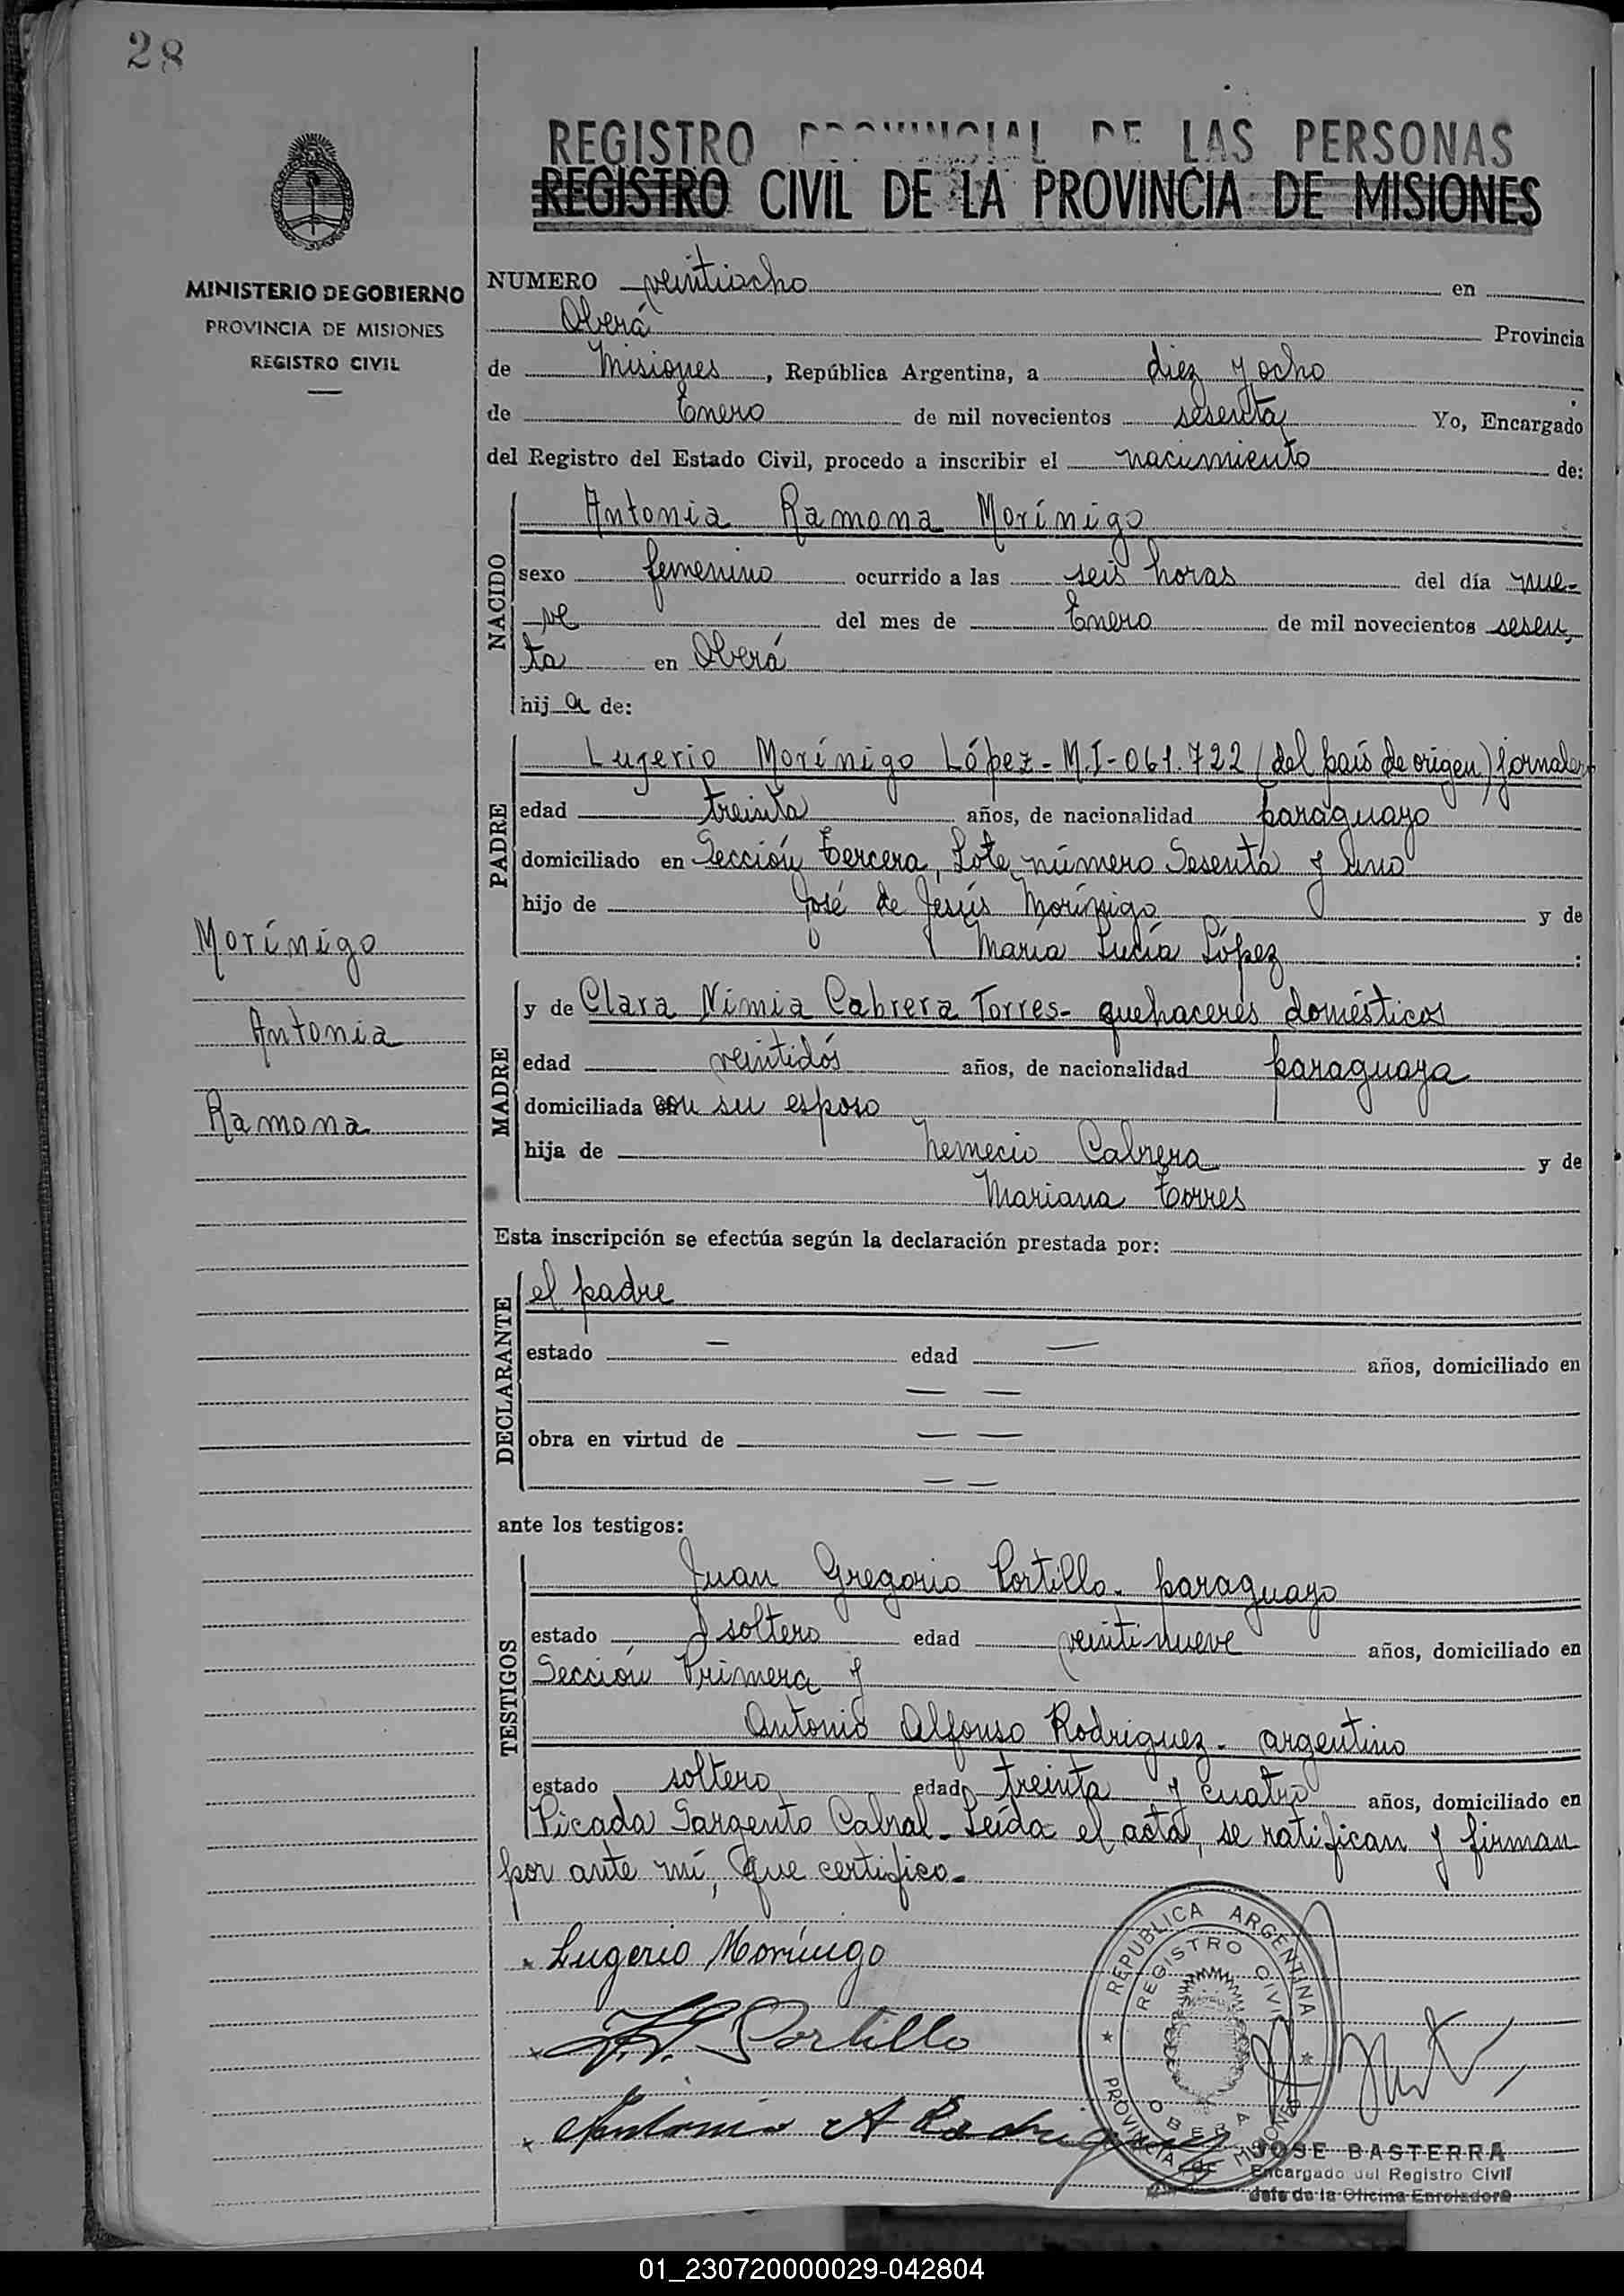 28
REGISTRO PROVINCIAL DE LAS PERSONAS
REGISTRO CIVIL DE LA PROVINCIA DE MISIONES
MINISTERIO DE GOBIERNO
PROVINCIA DE MISIONES
REGISTRO CIVIL
NUMERO veintiocho en
Oberá Provincia
de Misiones, República Argentina, a diez y ocho
de Enero de mil novecientos sesenta Yo, Encargado
del Registro del Estado Civil, procedo a inscribir el nacimiento de:
NACIDO
Antonia Ramona Morínigo
sexo femenino ocurrido a las seis horas del día nue-
ve del mes de Enero de mil novecientos sesen-
ta en Oberá
hija de:
PADRE
Lugerio Morínigo López - M.I - 061.722 (del país de origen) jornalero
edad treinta años, de nacionalidad paraguayo
domiciliado en Sección Tercera, Lote número Sesenta y Uno
hijo de José de Jesús Morínigo y de
María Lucía López :
Morínigo
Antonia
Ramona
MADRE
y de Clara Nimia Cabrera Torres - quehaceres domésticos
edad veintidós años, de nacionalidad paraguaya
domiciliada con su esposo
hija de Nemecio Cabrera y de
Mariana Torres
Esta inscripción se efectúa según la declaración prestada por:
DECLARANTE
el padre
estado — edad — años, domiciliado en
— —
obra en virtud de — —
— —
ante los testigos:
TESTIGOS
Juan Gregorio Portillo - paraguayo
estado soltero edad veintinueve años, domiciliado en
Sección Primera y
Antonio Alfonso Rodriguez - argentino
estado soltero edad treinta y cuatro años, domiciliado en
Picada Sargento Cabral - Leída el acta, se ratifican y firman
por ante mí, que certifico.
Lugerio Morínigo
Portillo
Antonio A Rodriguez
REPUBLICA ARGENTINA
REGISTRO CIVIL
OBERA
PROVINCIA DE MISIONES
JOSE BASTERRA
Encargado del Registro Civil
Jefe de la Oficina Enroladora
01_230720000029-042804